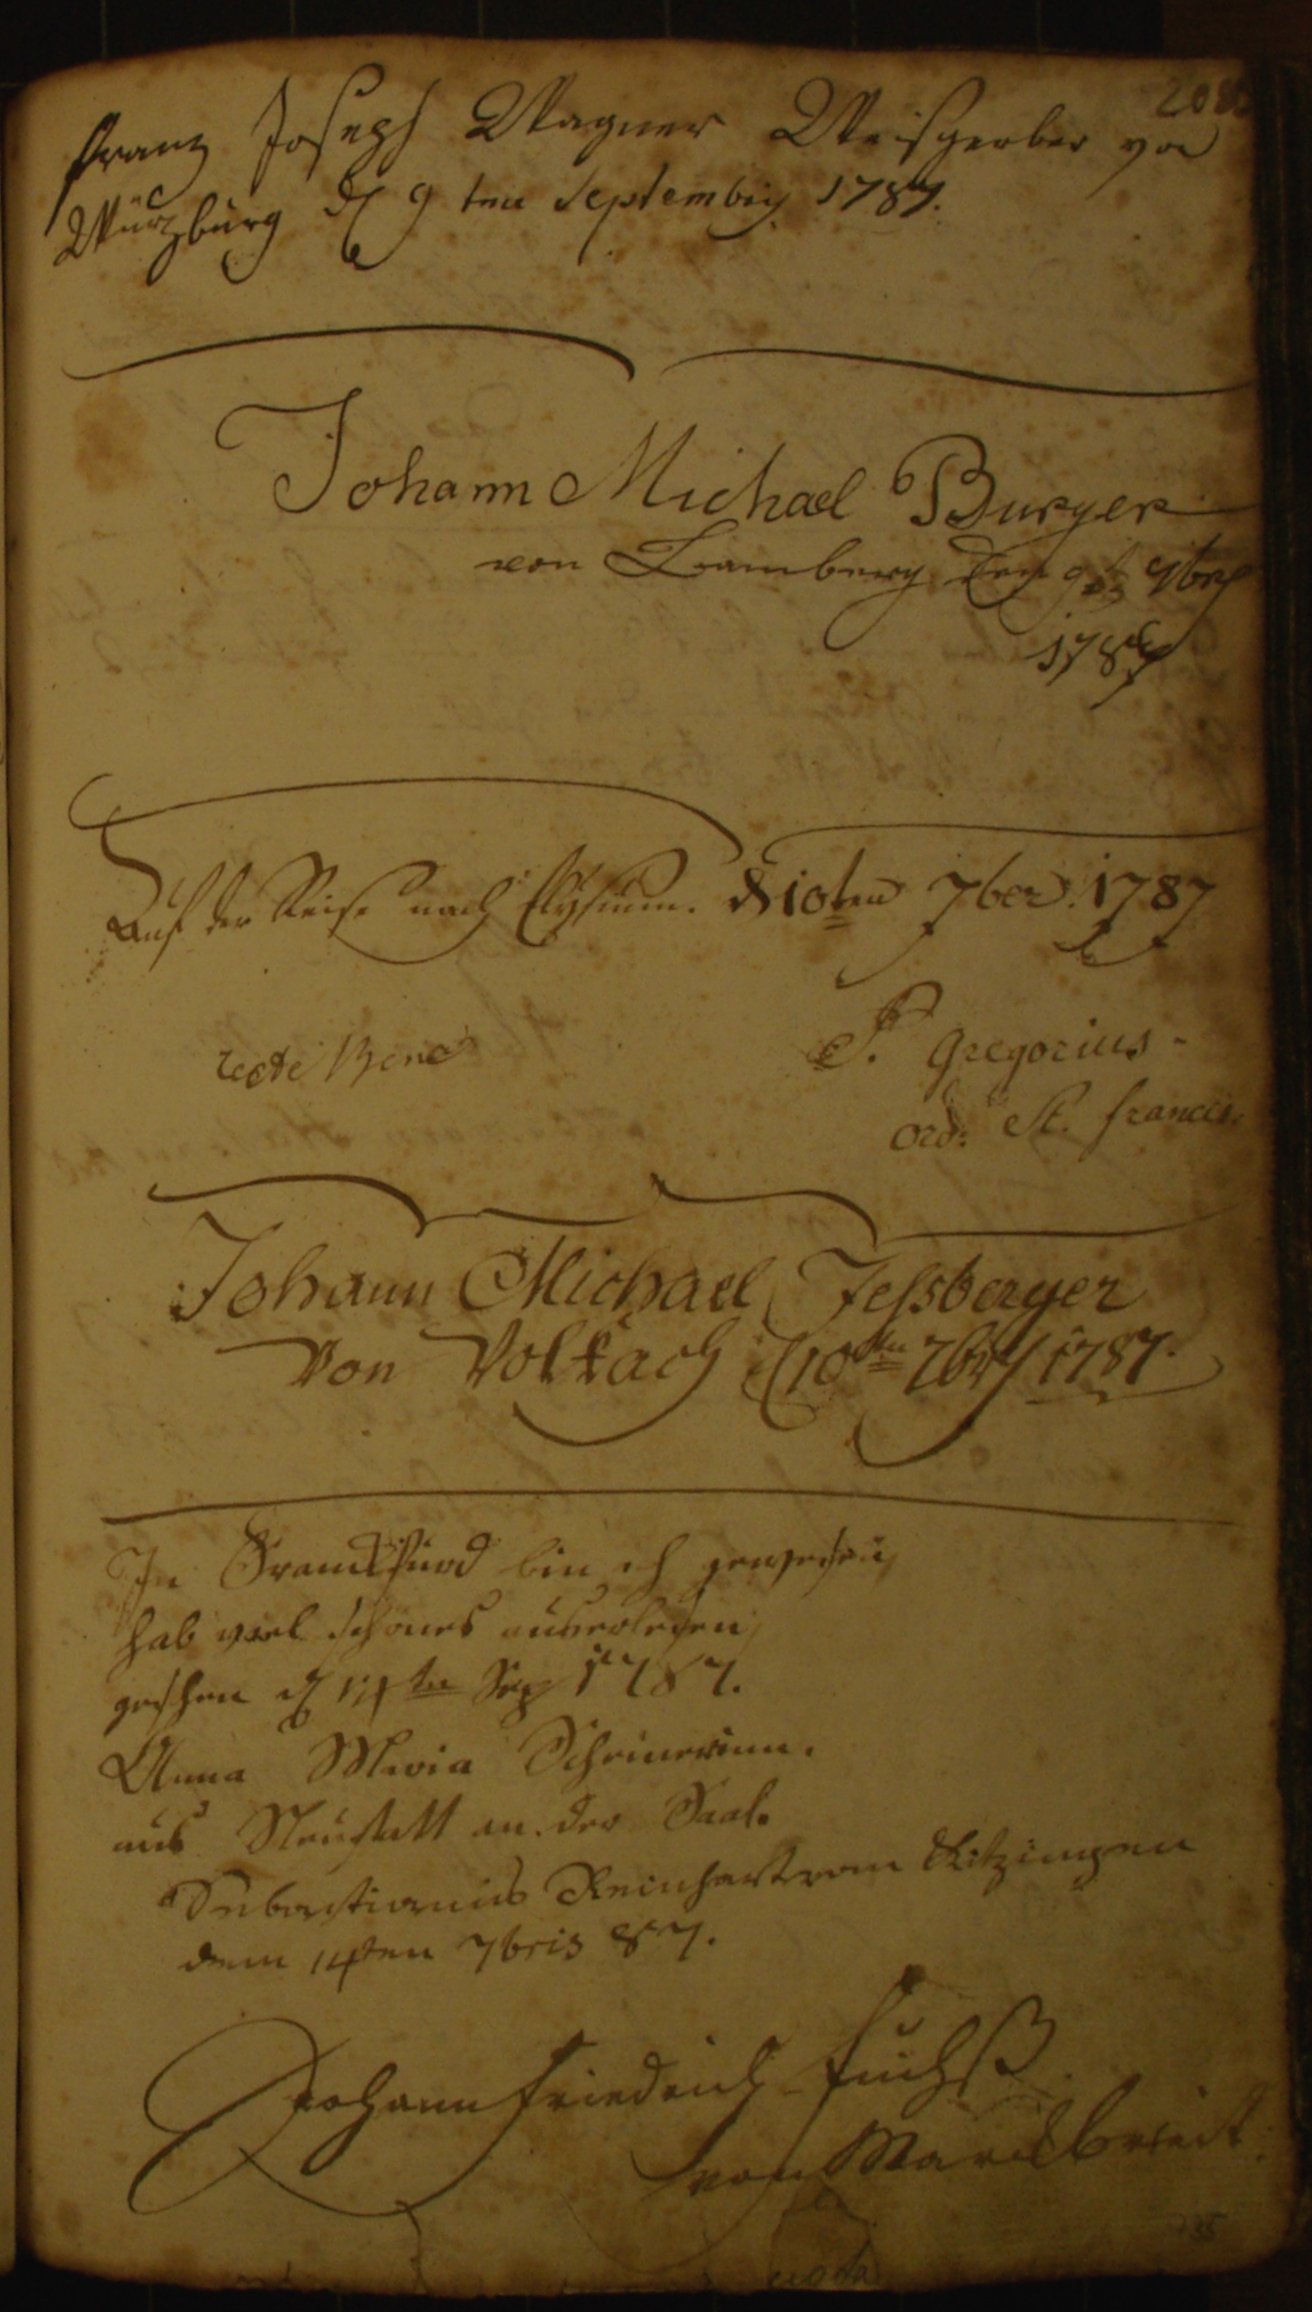 Franz Joseph Wagner Weisgerber von
Würzburg d 9 ten Septembris 1787.
Johann Michael Burger
von Bamberg den 9t 7bris
1787
Auf der Reise nach Elysium. d 10ten 7ber. 1787
recte Bene
P. Gregorius
Ord: St. Francis.
Johann Michael Felsberger
Von Volkach d 10ten 7bris 1787.
In Franckfurd bin ich gewesen,
hab viel schönes auserlesen,
geschen d 11ten Sep 1787.
Anna Maria Scheinerinn.
aus Neustatt an der Saal.
Sebastianus Reinhart von Kitzingen
dem 11ten 7bris 87.
Johann Friedrich Fuchß
von Marckbreit